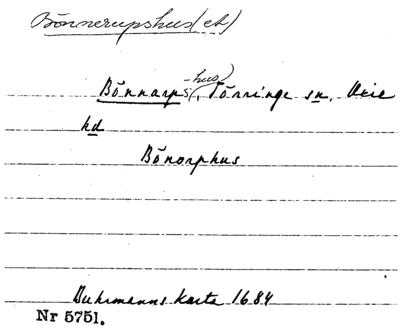 Bönnerupshus(et)
Bönnarps(-hus), Törringe sn, Oxie
hd
Bönorphus
Buhrmanns karta 1684
Nr 5751.